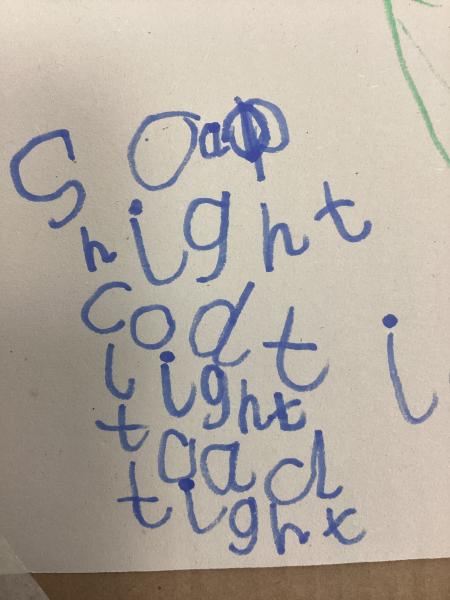 Soap
night
coat
light
toad
tight